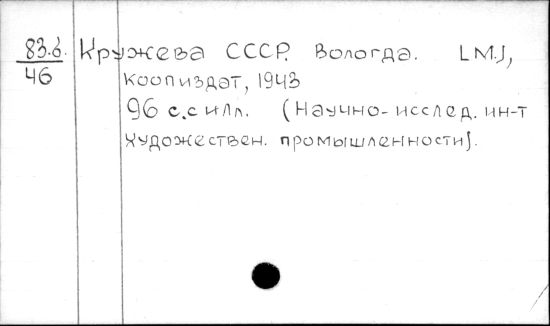 83.б. Кружева СССР. Вологда. [М.],
46 Коопиздат, 1943
96 с. с илл. (Научно-исслед. ин-т
художествен. промышленности).